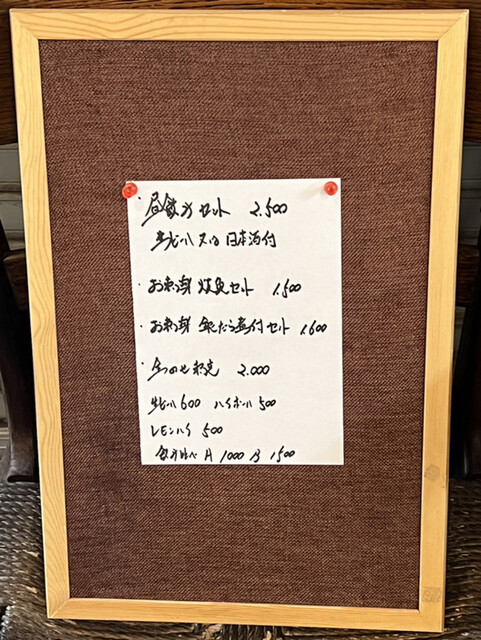 ・昼飲みセット 2.500
生ビール又は日本酒付
・お刺身 焼魚セット 1.500
・お刺身 銀だら煮付セット 1.600
・ 2.000
生ビール 600 ハイボール 500
レモンハイ 500
飲み比べ A 1000 B 1500